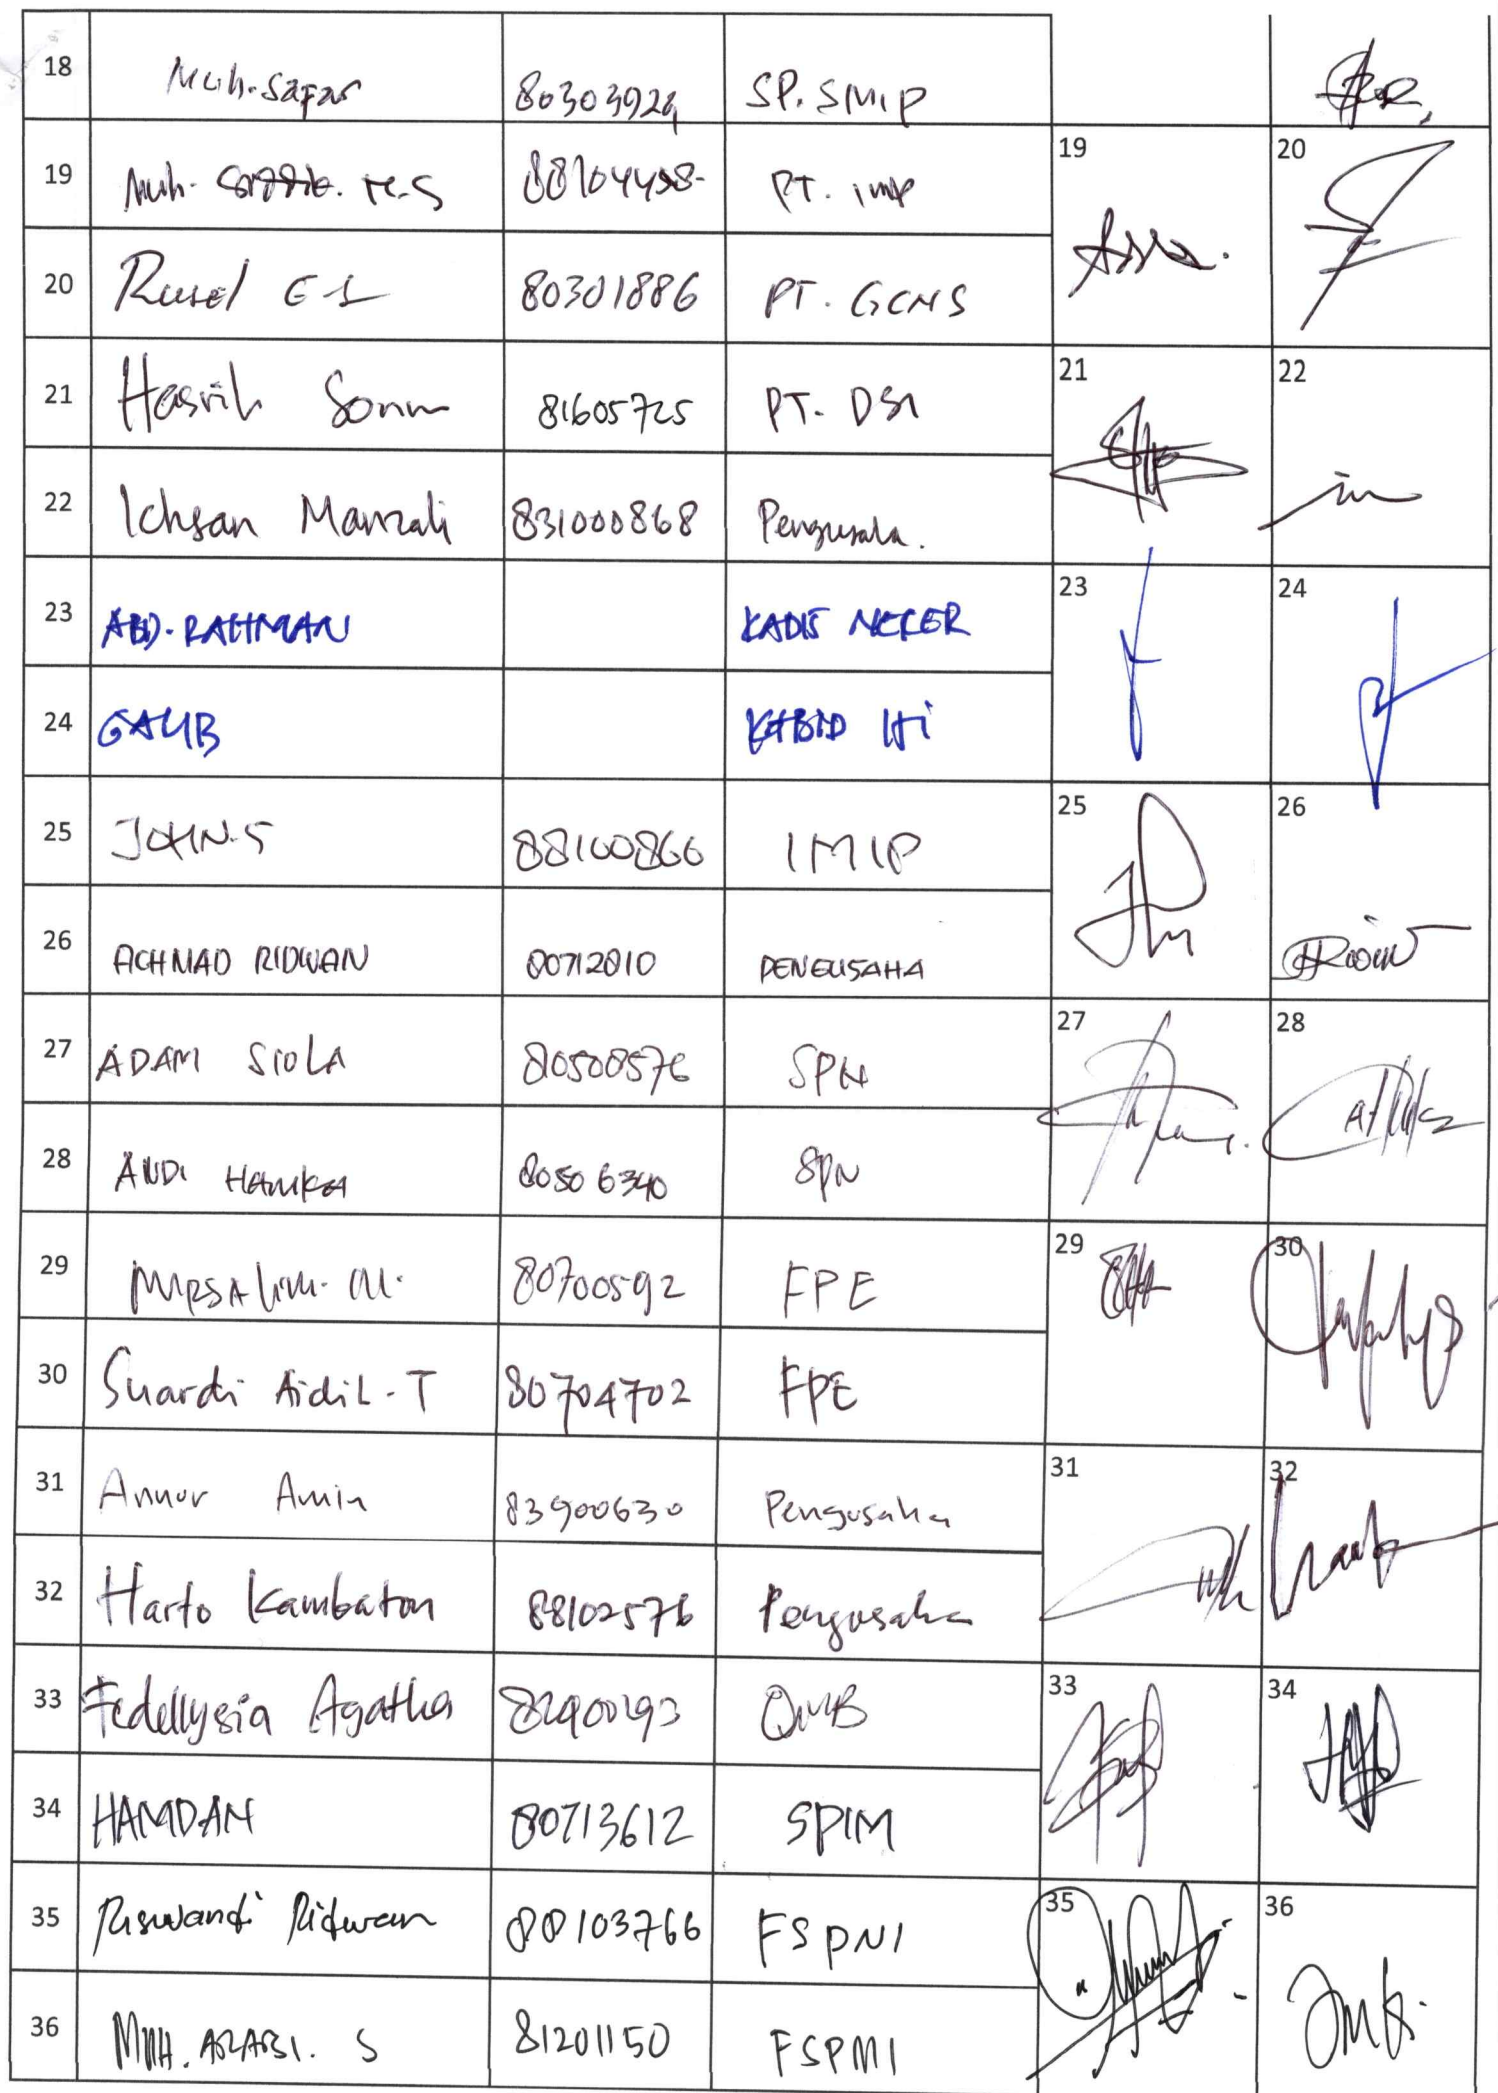 18 Muh. Safar 80303924 SP. SMIP
19 Muh. M.S 88104498 PT. IMIP 19 20
20 Rusel E S 80301886 PT. GCNS
21 Hasrih Sonn 81605725 PT. DSI 21 22
22 Ichsan Marzali 831000868 Pengusaha.
23 ABD. RAHMAN KADIS NAKER 23 24
24 GALIB KABID HI
25 JOHN.S 88100866 IMIP 25 26
26 ACHMAD RIDWAN 80712810 PENGUSAHA
27 ADAM SIOLA 80508576 SPN 27 28
28 ANDI HAMKA 80506340 SPN
29 MURSALIM. M. 80700592 FPE 29 30
30 Suardi AidiL-T 80704702 FPE
31 Annur Amin 83900630 Pengusaha 31 32
32 Harto Kambaton 88102576 Pengusaha
33 Fedellysia Agatha 82900293 QMB 33 34
34 HAMDAN 80713612 SPIM
35 Riswandi Ridwan 88103766 FSPNI 35 36
36 MUH. AZARSI. S 81201150 FSPMI